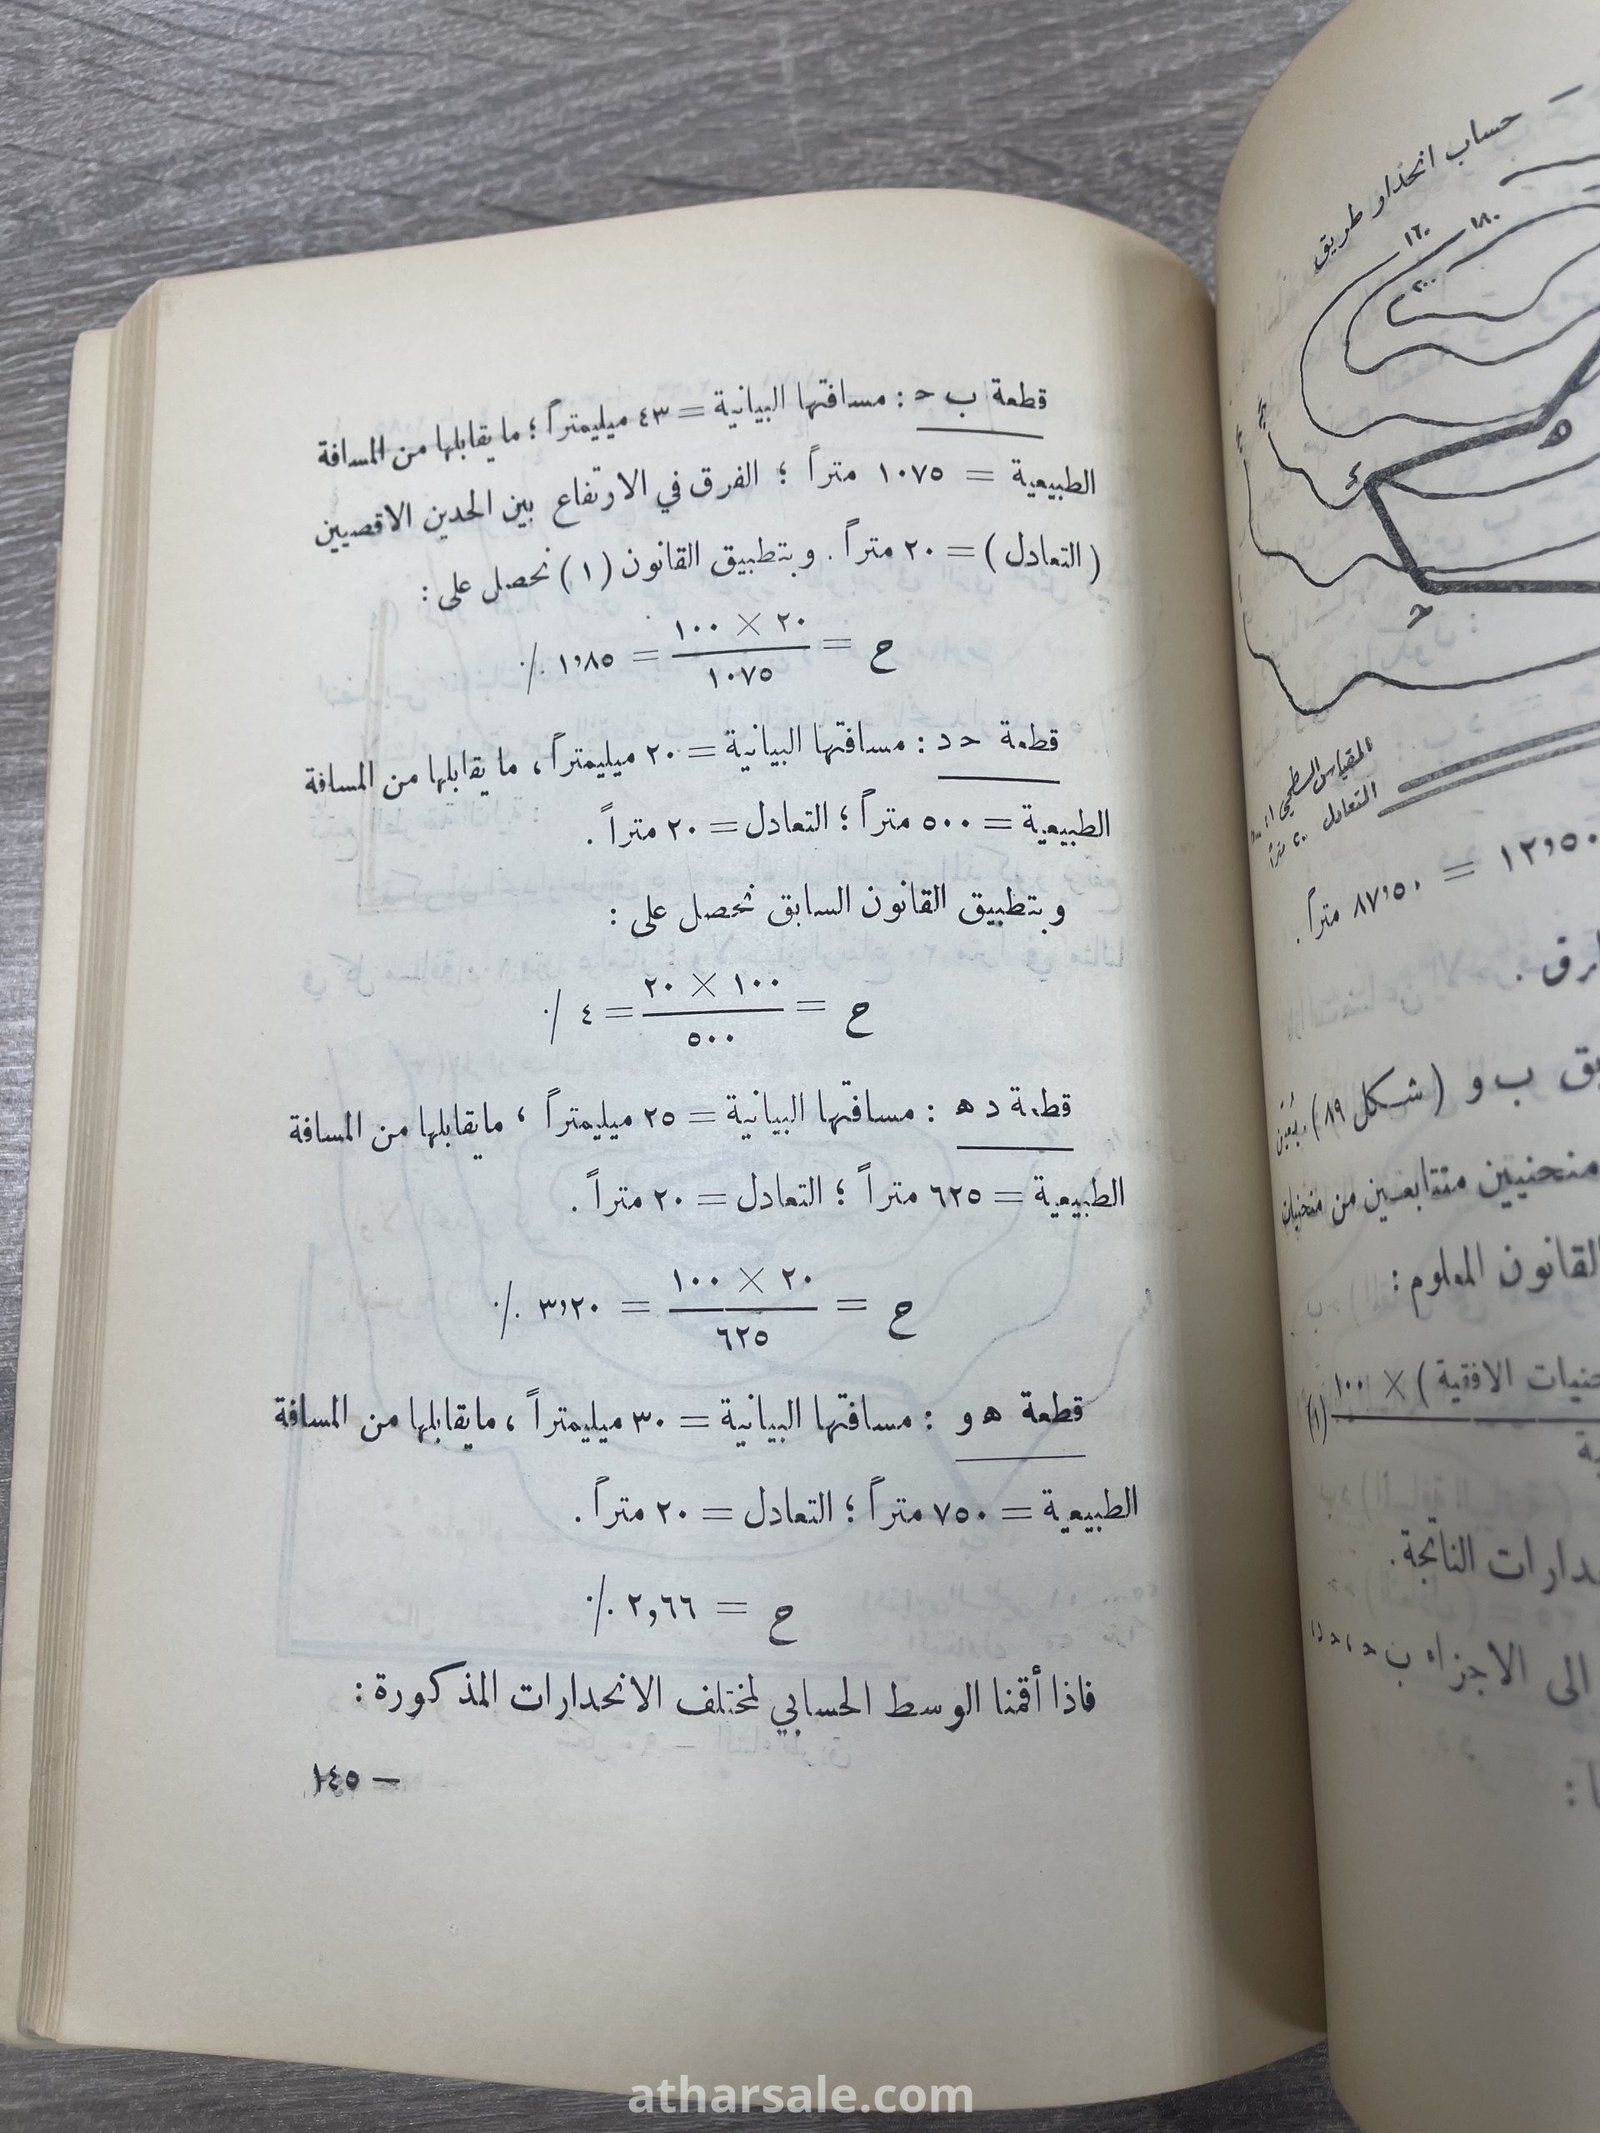 حساب انحدار طريق
١٦٠
١٨٠
٢٠٠
هـ
د
حـ
المقياس السطحي
التعادل ٢٠ متراً
١٢,٥٠ =
٨٧,٥٠ متراً.
ب و (شكل ٨٩)
منحنيين متتابعين من منحنيات
القانون المعلوم :
الافقية ) × ١٠٠
(١)
الناتجة.
الى الاجزاء ب حـ ،
قطعة ب حـ : مسافتها البيانية = ٤٣ ميليمتراً ؛ ما يقابلها من المسافة
الطبيعية = ١٠٧٥ متراً ؛ الفرق في الارتفاع بين الحدين الاقصيين
(التعادل) = ٢٠ متراً. وبتطبيق القانون (١) نحصل على :
ح = ٢٠ × ١٠٠ / ١٠٧٥ = ١,٨٥ ٪
قطعة حـ د : مسافتها البيانية = ٢٠ ميليمتراً ، ما يقابلها من المسافة
الطبيعية = ٥٠٠ متراً ؛ التعادل = ٢٠ متراً .
وبتطبيق القانون السابق نحصل على :
ح = ١٠٠ × ٢٠ / ٥٠٠ = ٤ ٪
قطعة د هـ : مسافتها البيانية = ٢٥ ميليمتراً ، مايقابلها من المسافة
الطبيعية = ٦٢٥ متراً ؛ التعادل = ٢٠ متراً .
ح = ٢٠ × ١٠٠ / ٦٢٥ = ٣,٢٠ ٪
قطعة هـ و : مسافتها البيانية = ٣٠ ميليمتراً ، مايقابلها من المسافة
الطبيعية = ٧٥٠ متراً ؛ التعادل = ٢٠ متراً .
ح = ٢,٦٦ ٪
فاذا أقمنا الوسط الحسابي لمختلف الانحدارات المذكورة :
– ١٤٥
atharsale.com